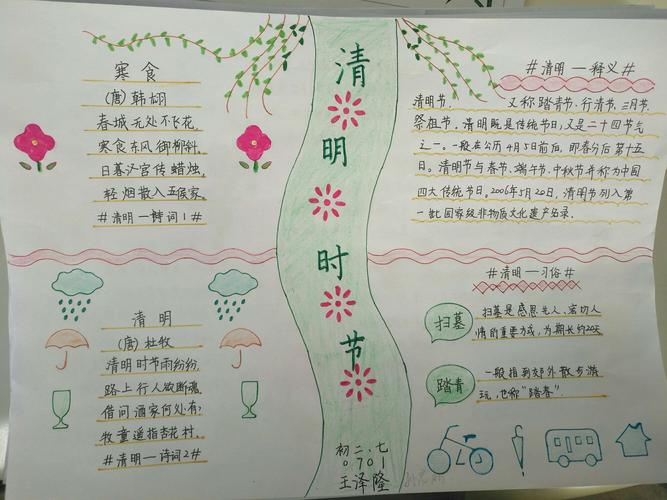 寒食
(唐)韩翃
春城无处不飞花,
寒食东风御柳斜。
日暮汉宫传蜡烛,
轻烟散入五侯家。
#清明一诗词1#
清明
(唐)杜牧
清明时节雨纷纷,
路上行人欲断魂
借问酒家何处有?
牧童遥指杏花村。
#清明一诗词2#
清
明
时
节
初二、七
0701
王泽隆
#清明一释义#
清明节, 又称踏青节、行清节、三月节、
祭祖节。清明既是传统节日,又是二十四节气
之一。一般在公历4月5日前后,即春分后第十五
日。清明节与春节、端午节、中秋节并称为中国
四大传统节日。2006年5月20日,清明节列入第
一批国家级非物质文化遗产名录.
#清明一习俗#
扫墓
扫墓是感恩先人、密切人
情的重要方式,为期长约20天
踏青
一般指到郊外散步游
玩,也称"踏春".